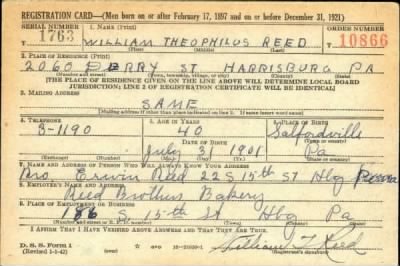 REGISTRATION CARD—(Men born on or after February 17, 1897 and on or before December 31, 1921)
SERIAL NUMBER 1. NAME (Print) ORDER NUMBER
1763 WILLIAM THEOPHILUS REED 10866
(First) (Middle) (Last)
2. PLACE OF RESIDENCE (Print)
2060 PERRY ST HARRISBURG PA
(Number and street) (Town, township, village, or city) (County) (State)
[THE PLACE OF RESIDENCE GIVEN ON THE LINE ABOVE WILL DETERMINE LOCAL BOARD
JURISDICTION; LINE 2 OF REGISTRATION CERTIFICATE WILL BE IDENTICAL]
3. MAILING ADDRESS
SAME
[Mailing address if other than place indicated on line 2. If same insert word same]
4. TELEPHONE 5. AGE IN YEARS 6. PLACE OF BIRTH
3-1190 40 Salfordville
DATE OF BIRTH (Town or county)
July 31 1901 Pa
(Exchange) (Number) (Mo.) (Day) (Yr.) (State or country)
7. NAME AND ADDRESS OF PERSON WHO WILL ALWAYS KNOW YOUR ADDRESS
Erwin Reed 22 S 15th ST Hbg Penna
8. EMPLOYER'S NAME AND ADDRESS
Reed Brothers Bakery
9. PLACE OF EMPLOYMENT OR BUSINESS
S 15th St Hbg Pa
(Number and street or R. F. D. number) (Town) (County) (State)
I AFFIRM THAT I HAVE VERIFIED ABOVE ANSWERS AND THAT THEY ARE TRUE.
D. S. S. Form 1
(Revised 1-1-42) (over) William T Reed
(Registrant's signature)